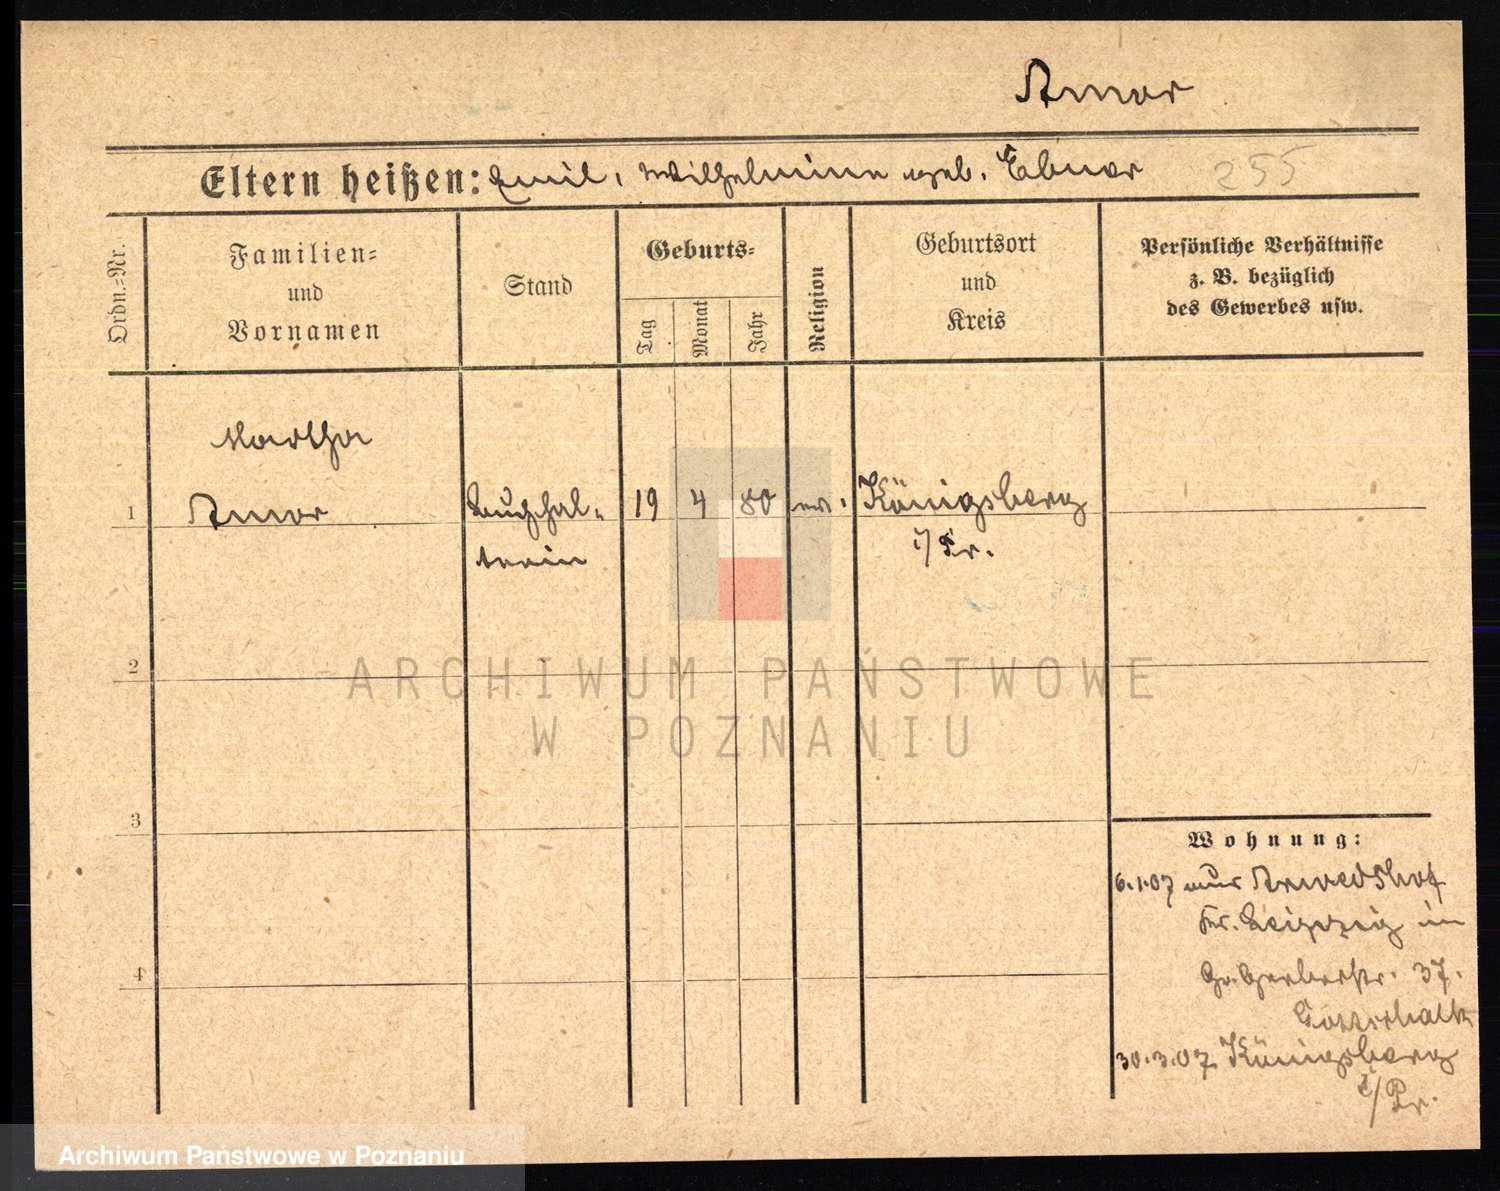 Amor
Eltern heißen: Emil, Wilhelmine geb. Ebner 255
Ordn.-Nr.
Familien-
und
Vornamen
Stand
Geburts-
Tag
Monat
Jahr
Religion
Geburtsort
und
Kreis
Persönliche Verhältnisse
z. B. bezüglich
des Gewerbes usw.
Martha
1 Amor Buchhal- 19 4 80 ev. Königsberg
terin i/Pr.
2
ARCHIWUM PAŃSTWOWE
W POZNANIU
3
Wohnung:
6.1.07 aus Arwedshof
Kr. Leipzig in
Gr. Gerberstr. 37.
4
30.3.07 Königsberg
i/Pr.
Archiwum Państwowe w Poznaniu